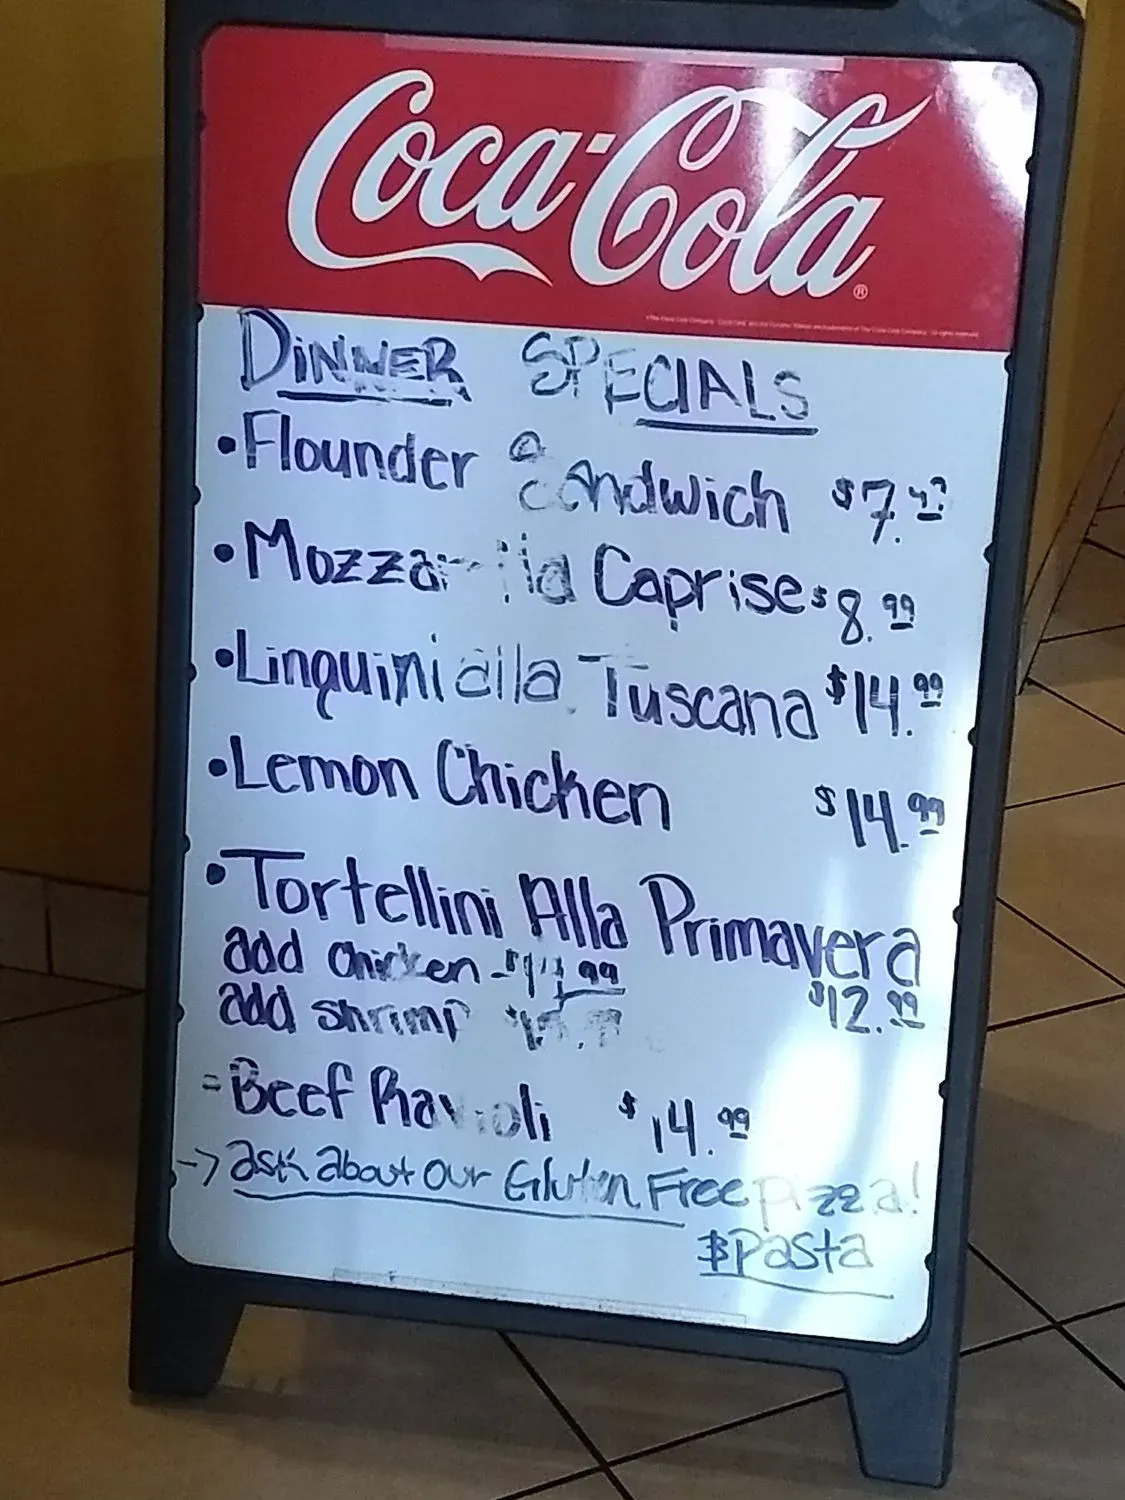 Coca-Cola
DINNER SPECIALS
• Flounder Sandwich
• Mozzarella Caprise $8.99
• Linguini alla Tuscana $14.99
• Lemon Chicken $14.99
• Tortellini Alla Primavera
add chicken - $14.99
add shrimp $12.99
= Beef Ravioli $14.99
-> ask about our Gluten Free pizza!
& Pasta